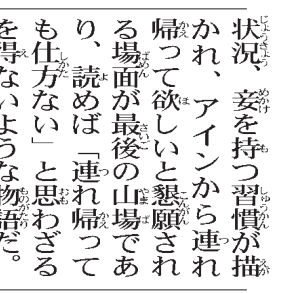 状況、妾を持つ習慣が描
かれ、アインから連れ
帰って欲しいと懇願され
る場面が最後の山場であ
り、読めば「連れ帰って
も仕方ない」と思わざる
を得ないような物語だ。